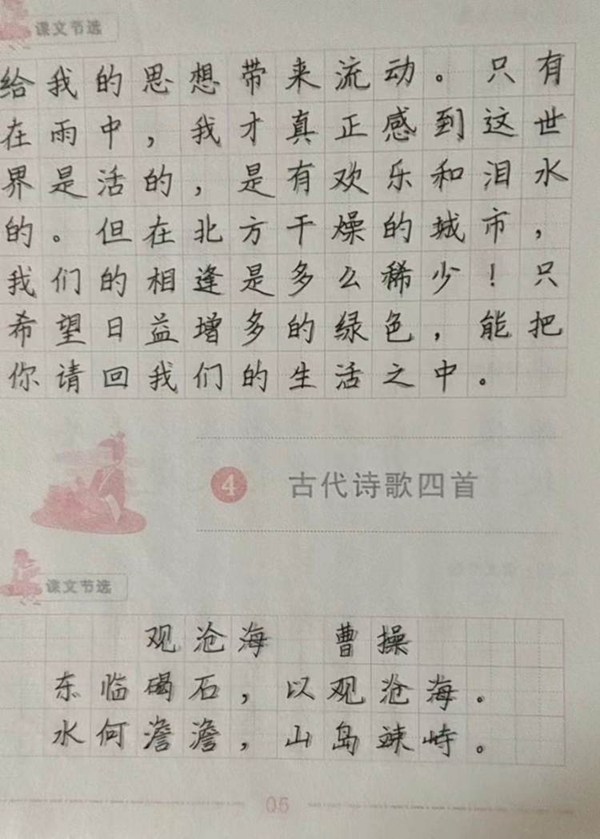 课文节选
给我的思想带来流动。只有
在雨中，我才真正感到这世
界是活的，是有欢乐和泪水
的。但在北方干燥的城市，
我们的相逢是多么稀少！只
希望日益增多的绿色，能把
你请回我们的生活之中。
4 古代诗歌四首
课文节选
观沧海 曹操
东临碣石，以观沧海。
水何澹澹，山岛竦峙。
05